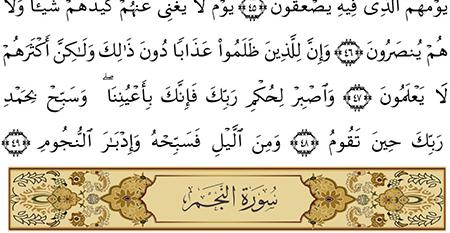 يَوْمَهُمُ ٱلَّذِى فِيهِ يُصْعَقُونَ ﴿٤٥﴾ يَوْمَ لَا يُغْنِى عَنْهُمْ كَيْدُهُمْ شَيْـًٔا وَلَا
هُمْ يُنصَرُونَ ﴿٤٦﴾ وَإِنَّ لِلَّذِينَ ظَلَمُوا۟ عَذَابًا دُونَ ذَٰلِكَ وَلَـٰكِنَّ أَكْثَرَهُمْ
لَا يَعْلَمُونَ ﴿٤٧﴾ وَٱصْبِرْ لِحُكْمِ رَبِّكَ فَإِنَّكَ بِأَعْيُنِنَا ۖ وَسَبِّحْ بِحَمْدِ
رَبِّكَ حِينَ تَقُومُ ﴿٤٨﴾ وَمِنَ ٱلَّيْلِ فَسَبِّحْهُ وَإِدْبَـٰرَ ٱلنُّجُومِ ﴿٤٩﴾
سُورَةُ النَّجْمِ